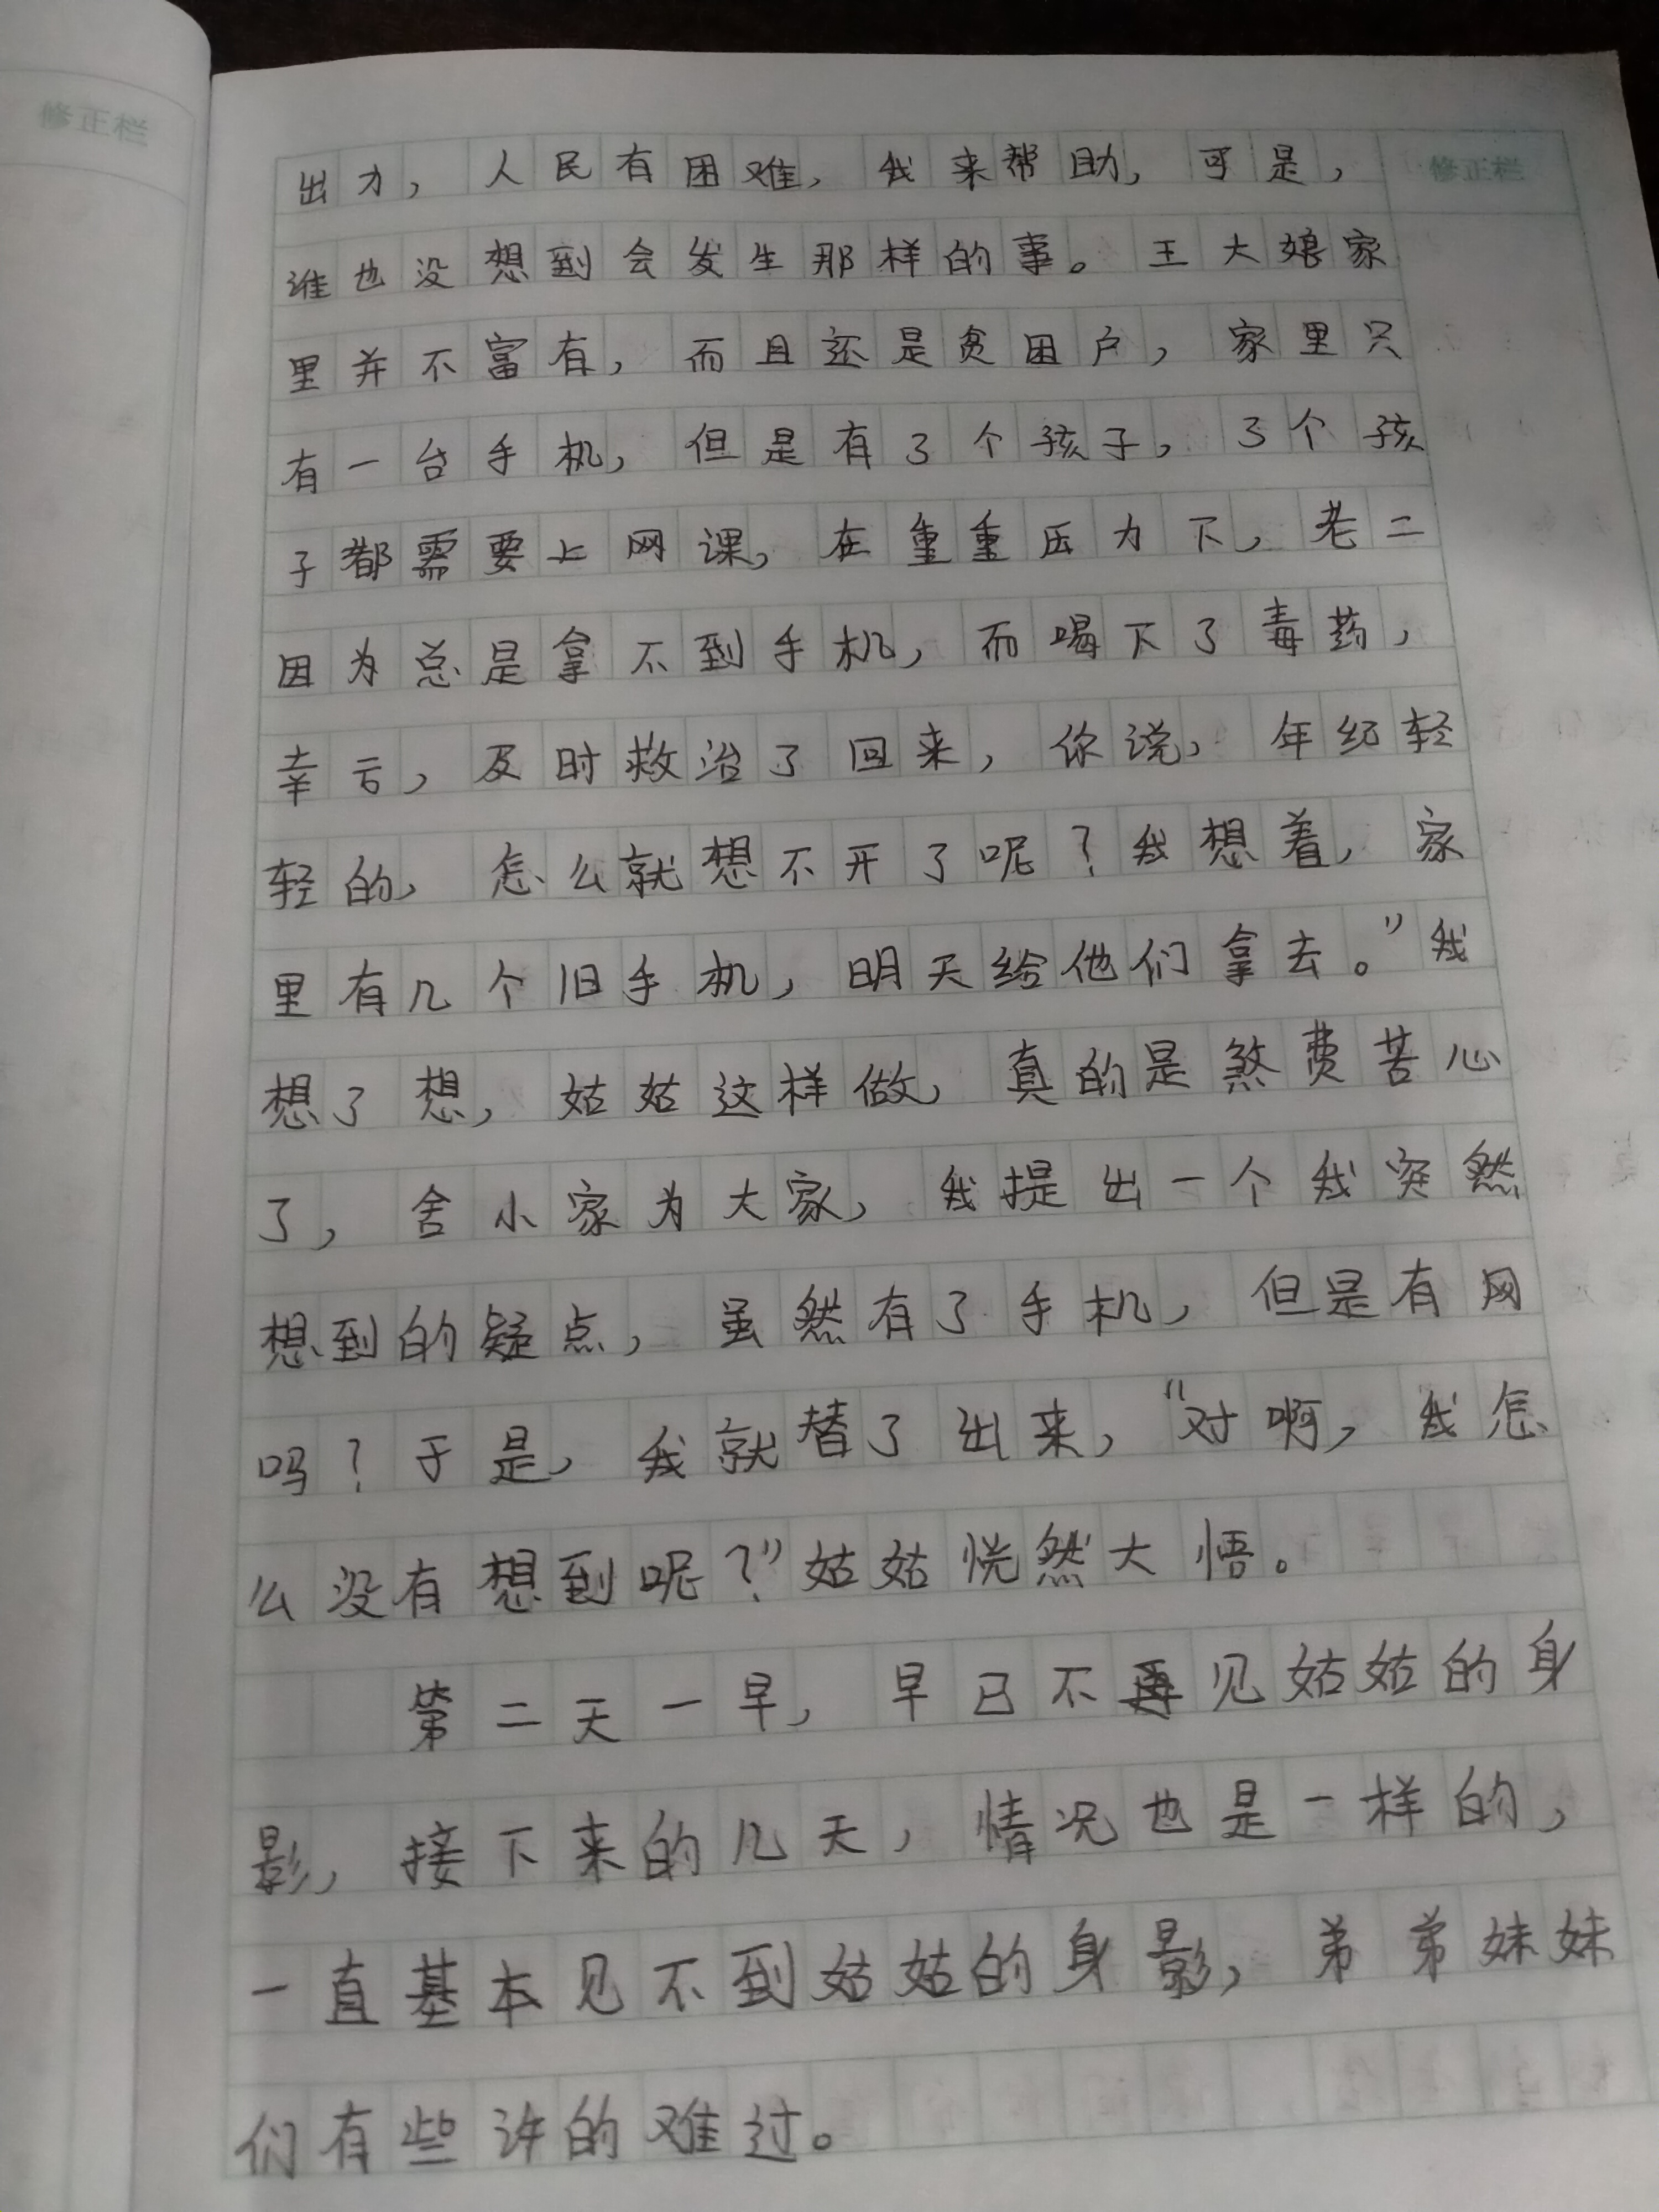 修正栏
修正栏
出力，人民有困难，我来帮助，可是，
谁也没想到会发生那样的事。王大娘家
里并不富有，而且还是贫困户，家里只
有一台手机，但是有3个孩子，3个孩
子都需要上网课，在重重压力下，老二
因为总是拿不到手机，而喝下了毒药，
幸亏，及时救治了回来，你说，年纪轻
轻的，怎么就想不开了呢？我想着，家
里有几个旧手机，明天给他们拿去。”我
想了想，姑姑这样做，真的是煞费苦心
了，舍小家为大家，我提出一个我突然
想到的疑点，虽然有了手机，但是有网
吗？于是，我就替了出来，“对啊，我怎
么没有想到呢？”姑姑恍然大悟。
第二天一早，早已不再见姑姑的身
影，接下来的几天，情况也是一样的，
一直基本见不到姑姑的身影，弟弟妹妹
们有些许的难过。